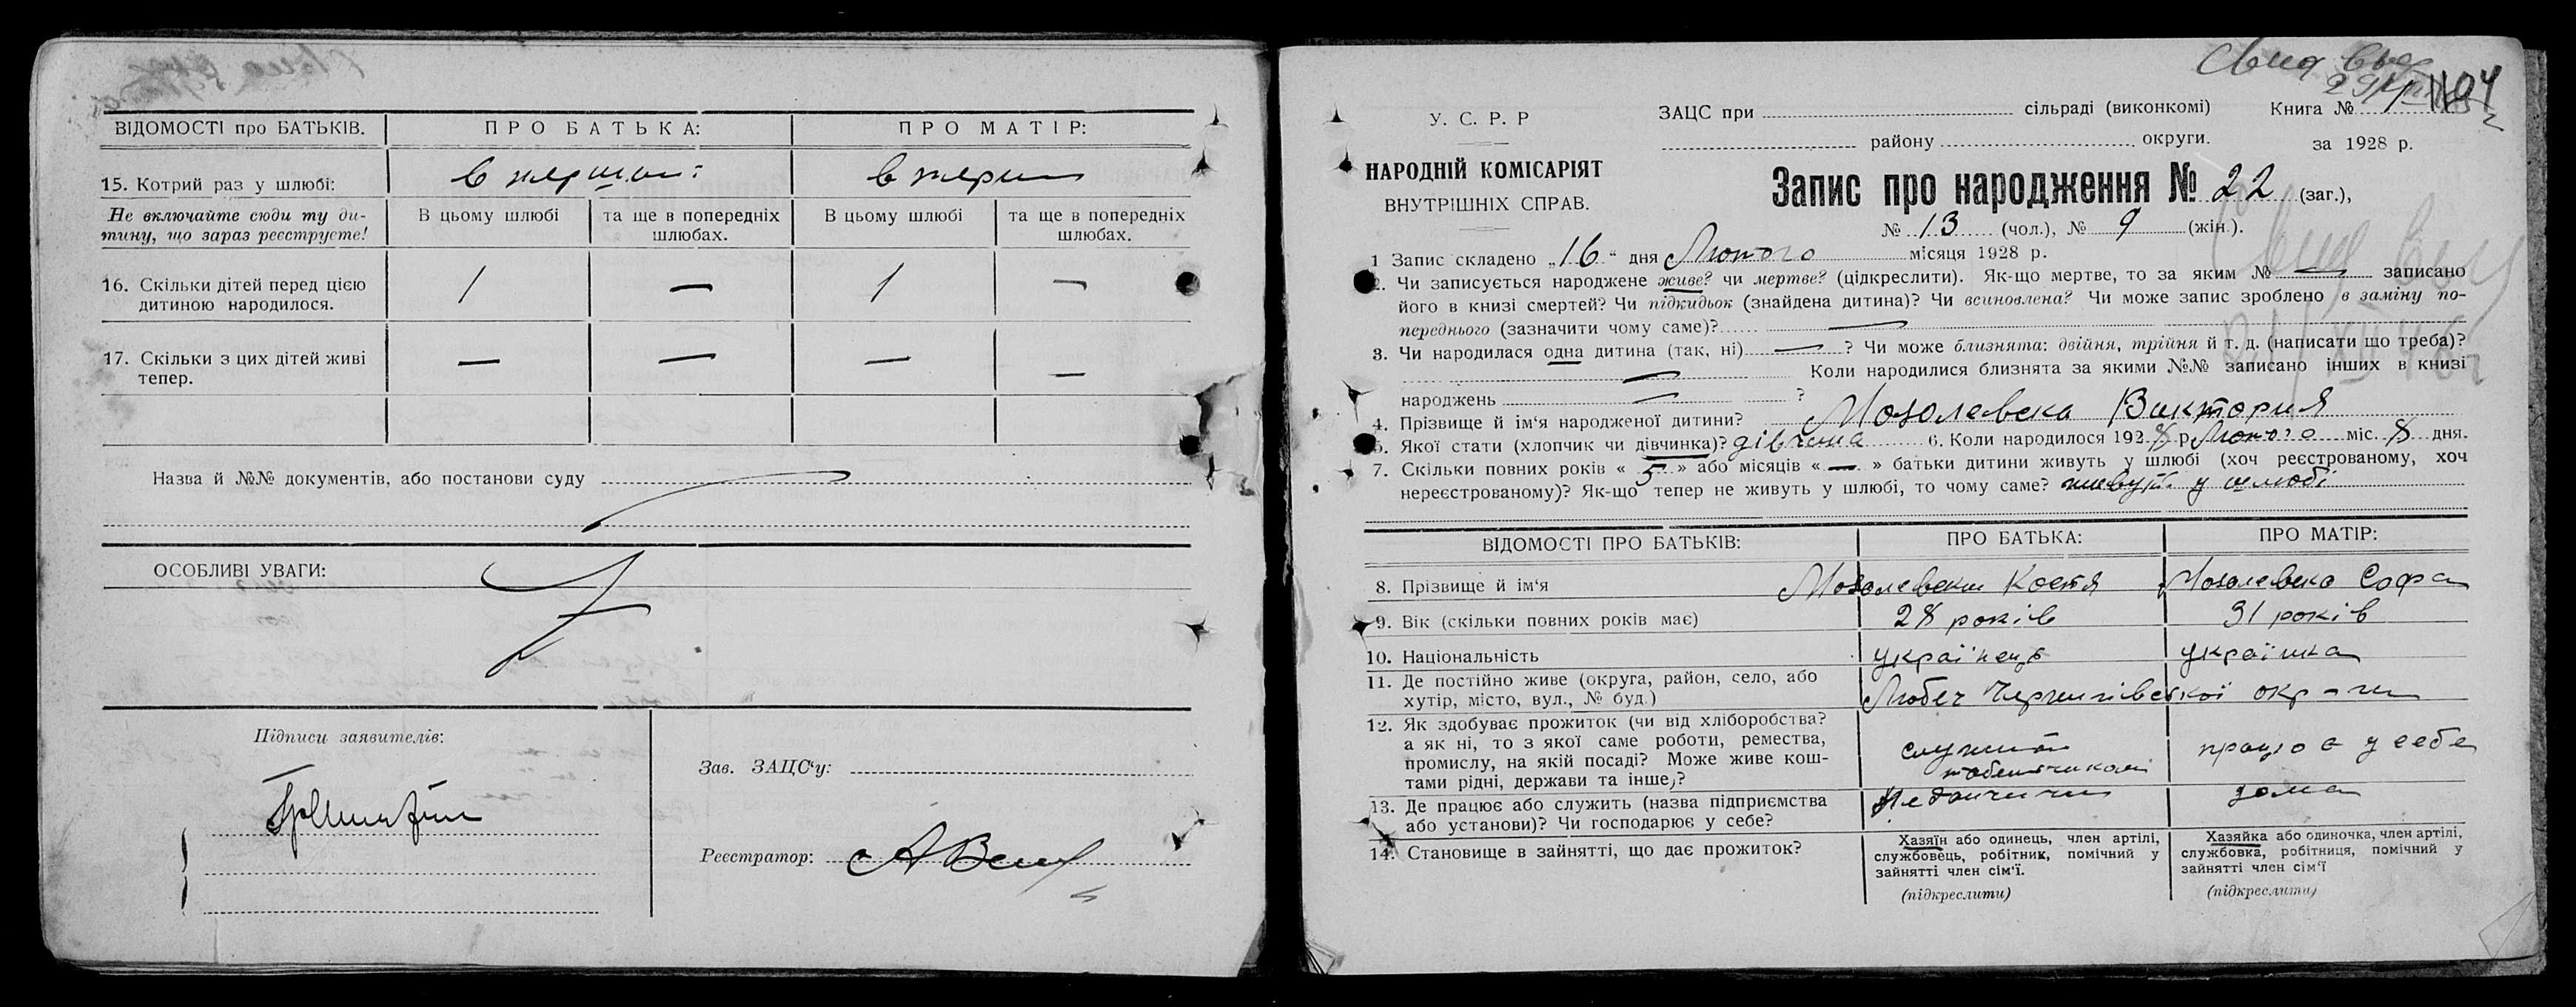 ВІДОМОСТІ про БАТЬКІВ. ПРО БАТЬКА: ПРО МАТІР:
15. Котрий раз у шлюбі: в перший в перши
Не включайте сюди ту ди- В цьому шлюбі та ще в попередніх В цьому шлюбі та ще в попередніх
тину, що зараз реєструєте! шлюбах. шлюбах.
16. Скільки дітей перед цією 1 — 1 —
дитиною народилося.
17. Скільки з цих дітей живі — — — —
тепер.
Назва й №№ документів, або постанови суду
ОСОБЛИВІ УВАГИ:
Підписи заявителів:
Зав. ЗАЦС'у:
Реєстратор:
У. С. Р. Р
НАРОДНІЙ КОМІСАРІЯТ
ВНУТРІШНІХ СПРАВ.
ЗАЦС при сільраді (виконкомі) Книга № 1
району округи. за 1928 р.
Запис про народження № 22 (заг.),
№ 13 (чол.), № 9 (жін.).
1 Запис складено „16“ дня Лютого місяця 1928 р.
2. Чи записується народжене живе? чи мертве? (цідкреслити). Як-що мертве, то за яким № — записано
його в книзі смертей? Чи підкидьок (знайдена дитина)? Чи всиновлена? Чи може запис зроблено в заміну по-
переднього (зазначити чому саме)? —
3. Чи народилася одна дитина (так, ні) — ? Чи може близнята: двійня, трійня й т. д. (написати що треба)?
— Коли народилися близнята за якими №№ записано інших в книзі
народжень — ?
4. Прізвище й ім'я народженої дитини? Мозолевска Виктория
5. Якої стати (хлопчик чи дівчинка)? дівчина 6. Коли народилося 1928 р. Лютого міс. 8 дня.
7. Скільки повних років « 5 » або місяців « — » батьки дитини живуть у шлюбі (хоч реєстрованому, хоч
нереєстрованому)? Як-що тепер не живуть у шлюбі, то чому саме? живуть у шлюбі
ВІДОМОСТІ ПРО БАТЬКІВ: ПРО БАТЬКА: ПРО МАТІР:
8. Прізвище й ім'я Мозолевски Костя Мозолевска Софа
9. Вік (скільки повних років має) 28 років 31 років
10. Національність українець українка
11. Де постійно живе (округа, район, село, або
хутір, місто, вул., № буд.) Любеч Чернигівської окр-ги
12. Як здобуває прожиток (чи від хліборобства?
а як ні, то з якої саме роботи, ремества,
промислу, на якій посаді? Може живе кош-
тами рідні, держави та інше)? служить табельчиком працює у себе
13. Де працює або служить (назва підприємства
або установи)? Чи господарює у себе? дома
14. Становище в зайнятті, що дає прожиток?
Хазяїн або одинець, член артілі,
службовець, робітник, помічний у
зайнятті член сім'ї.
(підкреслити)
Хазяйка або одиночка, член артілі,
службовка, робітниця, помічний у
зайнятті член сім'ї
(підкреслити)